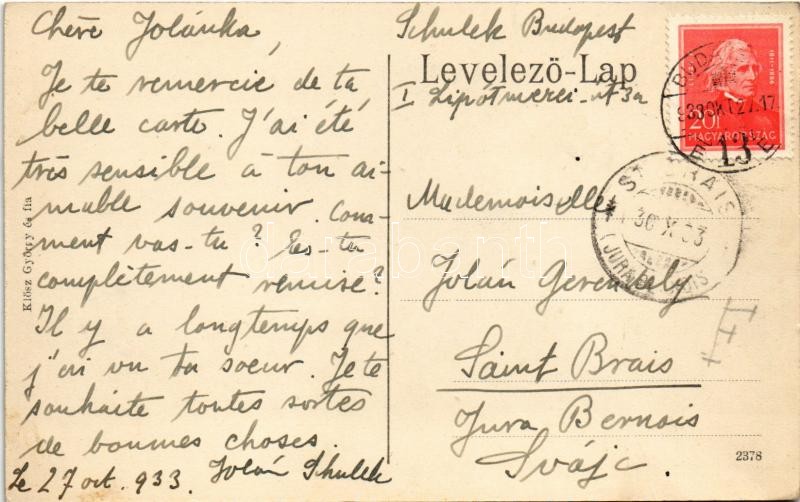 Chère Jolánka,
Je te remercie de ta
belle carte. J'ai été
très sensible à ton ai-
mable souvenir. Com-
ment vas-tu? Es-tu
complètement remise?
Il y a longtemps que
j'ai vu ta soeur. Je te
souhaite toutes sortes
de bonnes choses.
Le 27 oct. 933. Jolán Schulek
Klösz György és fia
Schulek Budapest
Levelező-Lap
I Lipótmezei-út 3a
20f
MAGYARORSZÁG
13
Mademoiselle
Jolán Gerencsély
Saint Brais
Jura Bernois
Svájc.
ST BRAIS
30 X 33
(JURA BERNOIS)
2378
darabanth